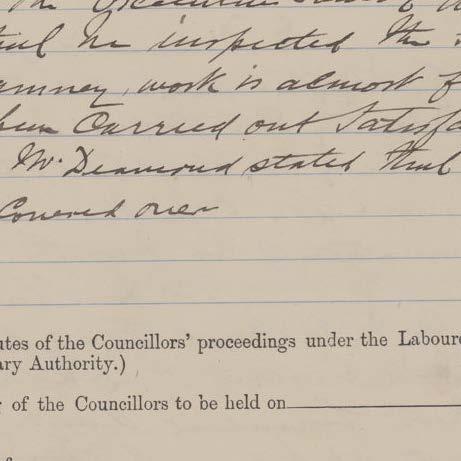 the Executive
that he inspected the
work is almost f
been Carried out Satisfa
Mr. Deamond stated that
Covered over
utes of the Councillors' proceedings under the Laboure
ary Authority.)
of the Councillors to be held on